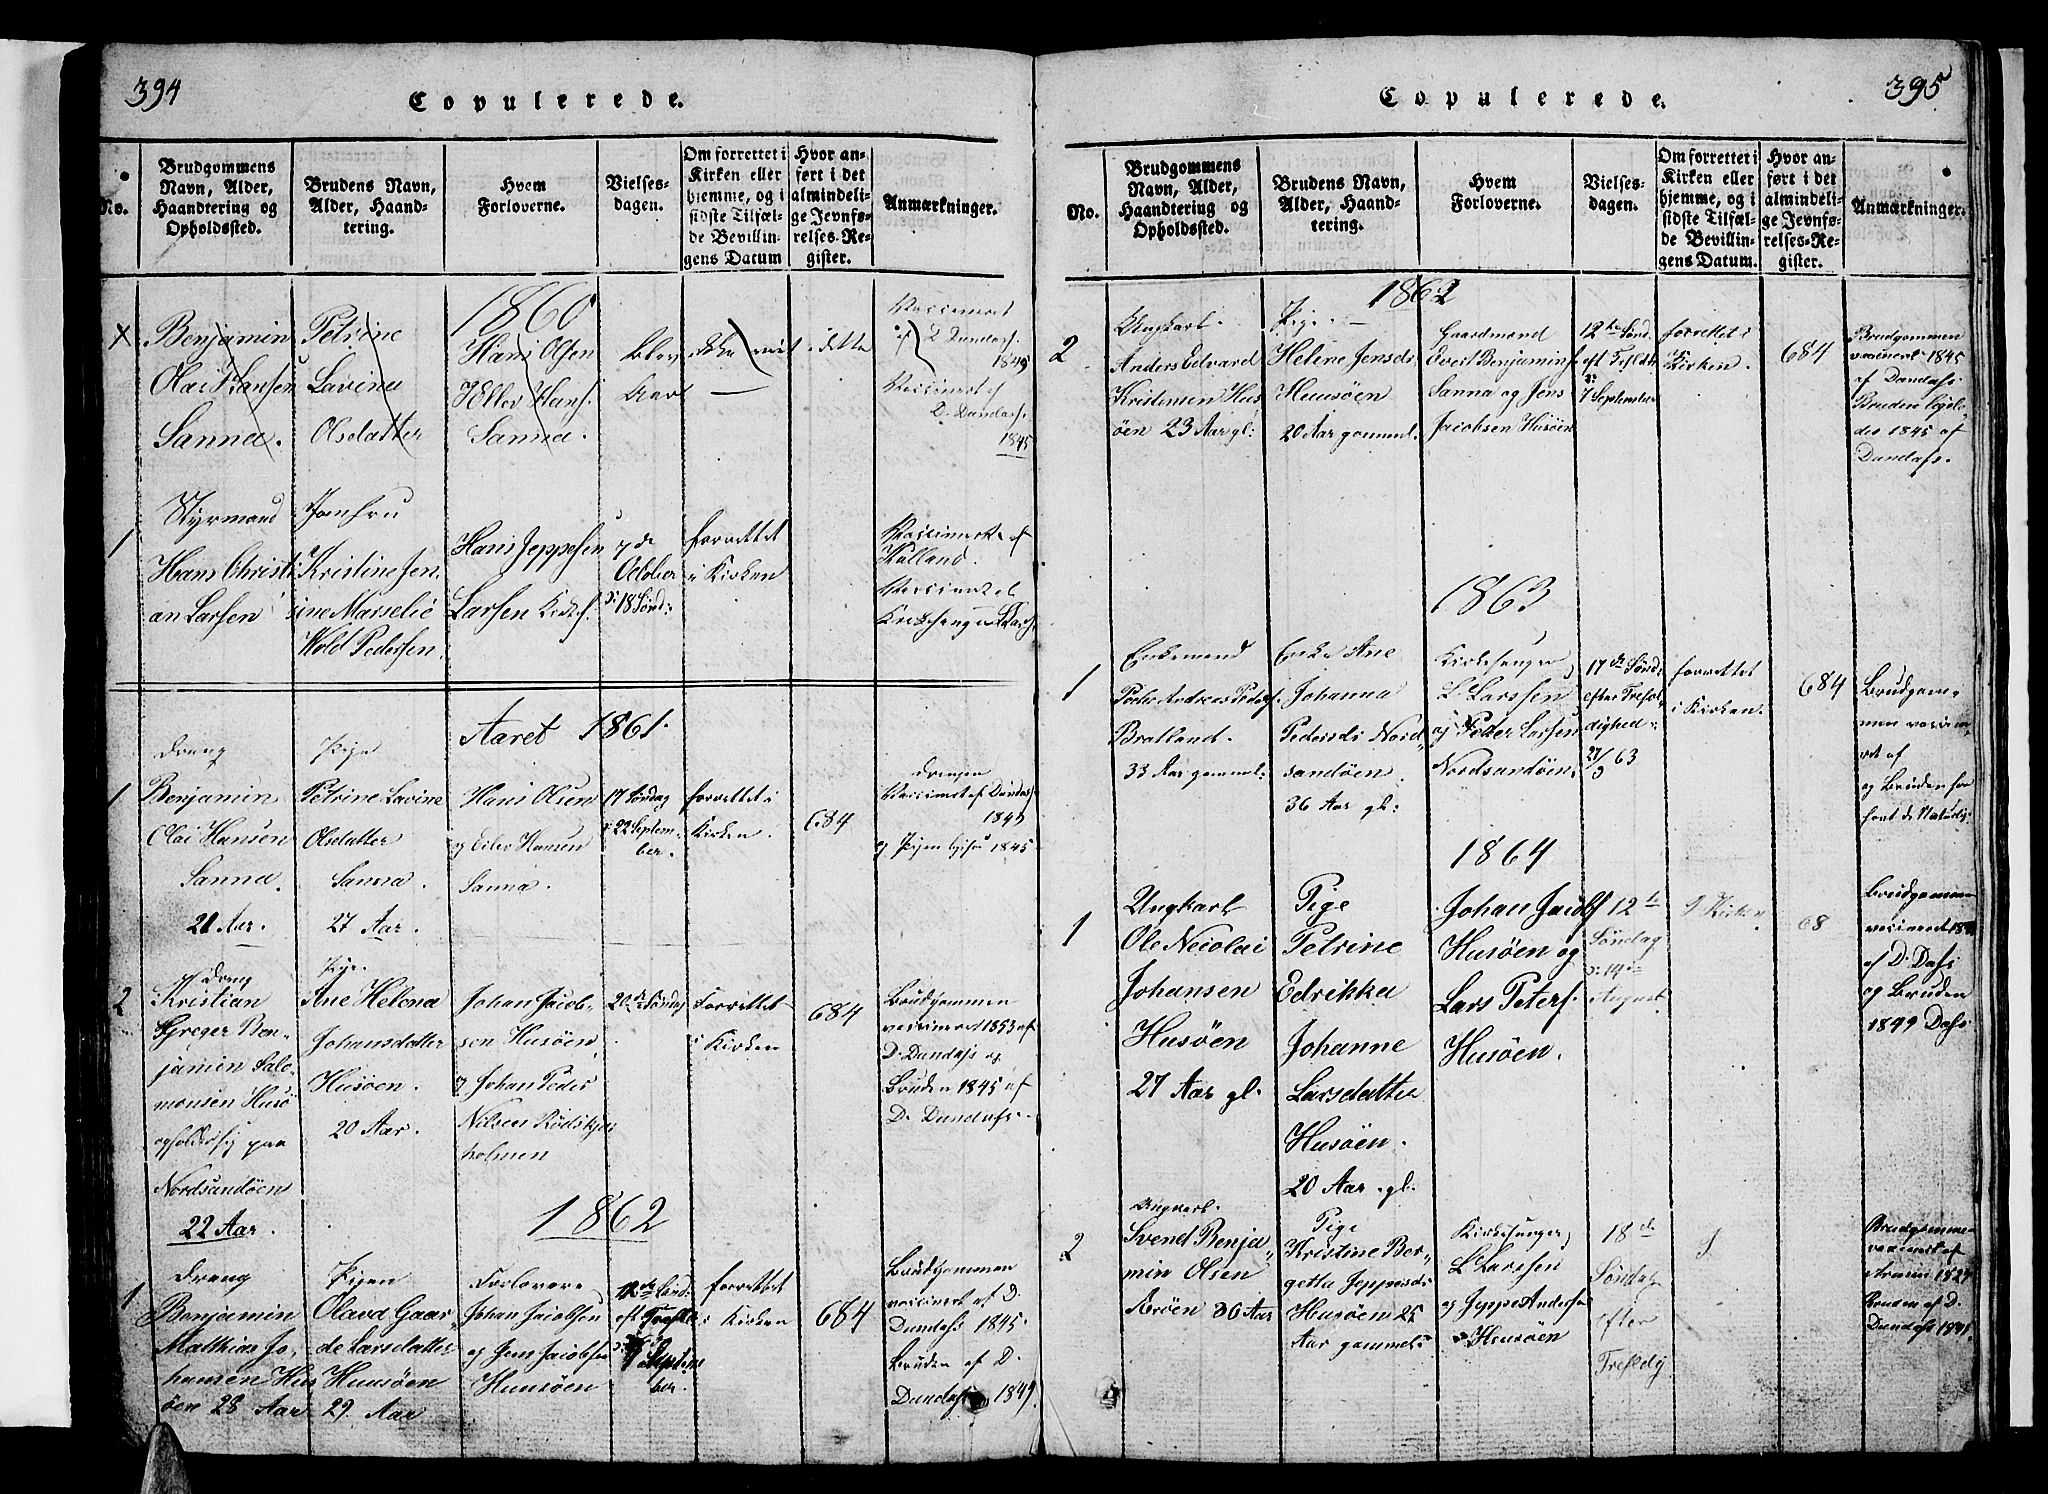 394
Copulerede.
No.
Brudgommens
Navn, Alder,
Haandtering og
Opholdssted.
Brudens Navn,
Alder, Haand-
tering.
Hvem
Forloverne.
Vielses-
dagen.
Om forrettet i
Kirken eller
hjemme, og i
sidste Tilfæl-
de Bevillin-
gens Datum
Hvor an-
ført i det
almindeli-
ge Jevnfø-
relses-Re-
gister.
Anmærkninger.
1860
Benjamin
Olai Hansen
Sanna.
Petrine
Lavina
Olsdatter
Hans Olsen
Eller Hans.
Sanna.
Blev ikke viet i dette
Aar
D. Dundas.
1849
D. Dundas.
1845
1
Styrmand
Hans Christi
an Larsen
Jomfru
Kristine Jen
sine Marselie
Wold Pedersen.
Hans Jeppesen
Larsen Kirkes.
7de
October
18 Sønd:
forrettet
i Kirken
Vaccineret af
Aaret 1861.
1
Dreng
Benjamin
Olai Hansen
Sanna.
21 Aar.
Pige
Petrine Lavine
Olsdatter
Sanna.
27 Aar.
Hans Olsen
og Eiler Hansen
Sanna.
17 Søndag
22 Septem-
ber.
forrettet i
Kirken.
684
Drengen
Vaccineret af Dundas
1849
og Pigen ligesaa 1845.
2
Dreng
Kristian
Greger Ben-
jamin Salo-
monsen Husø
opholder sig paa
Nordsandøen
22 Aar.
Pige.
Ane Helena
Johansdatter
Husøen.
20 Aar.
Johan Jacob-
sen Husøen
og Johan Peder
Nilsen Rødskjær
holmen
20de Søndag
Forrettet
i Kirken
684
Brudgommen
vaccineret 1853 af
D. Dundas og
Bruden 1845 af
D. Dundas.
1862
1
Dreng
Benjamin
Matthias Jo-
hansen Hus
øen 28 Aar
Pigen
Olava Gaar-
de Larsdatter
Huusøen
29 Aar
Forlovere
Johan Jacobsen
og Jens Jacobsen
Huusøen
12de Sønd:
eft Trefol
7 Septem
ber.
forrettet
i Kirken
684
Brudgommen
vaccineret af D.
Dundas 1845.
Bruden af D.
Dundas 1849.
395
Copulerede.
No.
Brudgommens
Navn, Alder,
Haandtering og
Opholdssted.
Brudens Navn,
Alder, Haand-
tering.
Hvem
Forloverne.
Vielses-
dagen.
Om forrettet i
Kirken eller
hjemme, og i
sidste Tilfæl-
de Bevillin-
gens Datum.
Hvor an-
ført i det
almindeli-
ge Jevnfø-
relses-Re-
gister.
Anmærkninger.
1862
2
Ungkarl.
Anders Edvard
Kristensen Hus
øen 23 Aar gl:
Pige.
Helene Jensdr
Huusøen
20 Aar gammel.
Gaardmand
Evert Benjamins.
Sanna og Jens
Jacobsen Husøen
12te Sønd
eft Trefoldh
7 September
forrettet i
Kirken.
684
Brudgommen
vaccineret 1845
af Dundas.
Bruden ligele-
des 1845 af
Dundas.
1863
1
Enkemand
Peder Andreas Peders.
Bratland.
33 Aar gammel:
Enke Ane
Johanna
Pedersdr Nord-
sandøen.
36 Aar gl:
Kirkesanger
L. Larssen
og Peter Larsen
Nordsandøen.
17de Sønd:
efter Trefol-
dighed
27/9 63
forrettet
i Kirken.
684
Brudgom-
men vaccine-
ret af
og Bruden for
havt de Naturlig.
1864
1
Ungkarl
Ole Nicolai
Johansen
Husøen
27 Aar gl.
Pige
Petrine
Edrikka
Johanne
Larsdatter
Husøen.
20 Aar gl.
Johan Jacobs
Husøen og
Lars Peters.
Husøen.
12te
Søndag
14de
August
I Kirken
68
Brudgommen
vaccineret
af D. Dass
og Bruden
1849 Dass.
2
Ungkarl.
Svend Benja-
min Olsen
Ærøen 30 Aar
Pige
Kristine Ber-
getta Jeppesdr
Husøen 25
Aar gammel.
Kirkesanger
L. Larssen
og Jeppe Anders
Husøen
18de
Søndag
efter
Trefoldg
I
Brudgommen
vaccineret af
Bruden af D.
Dundas